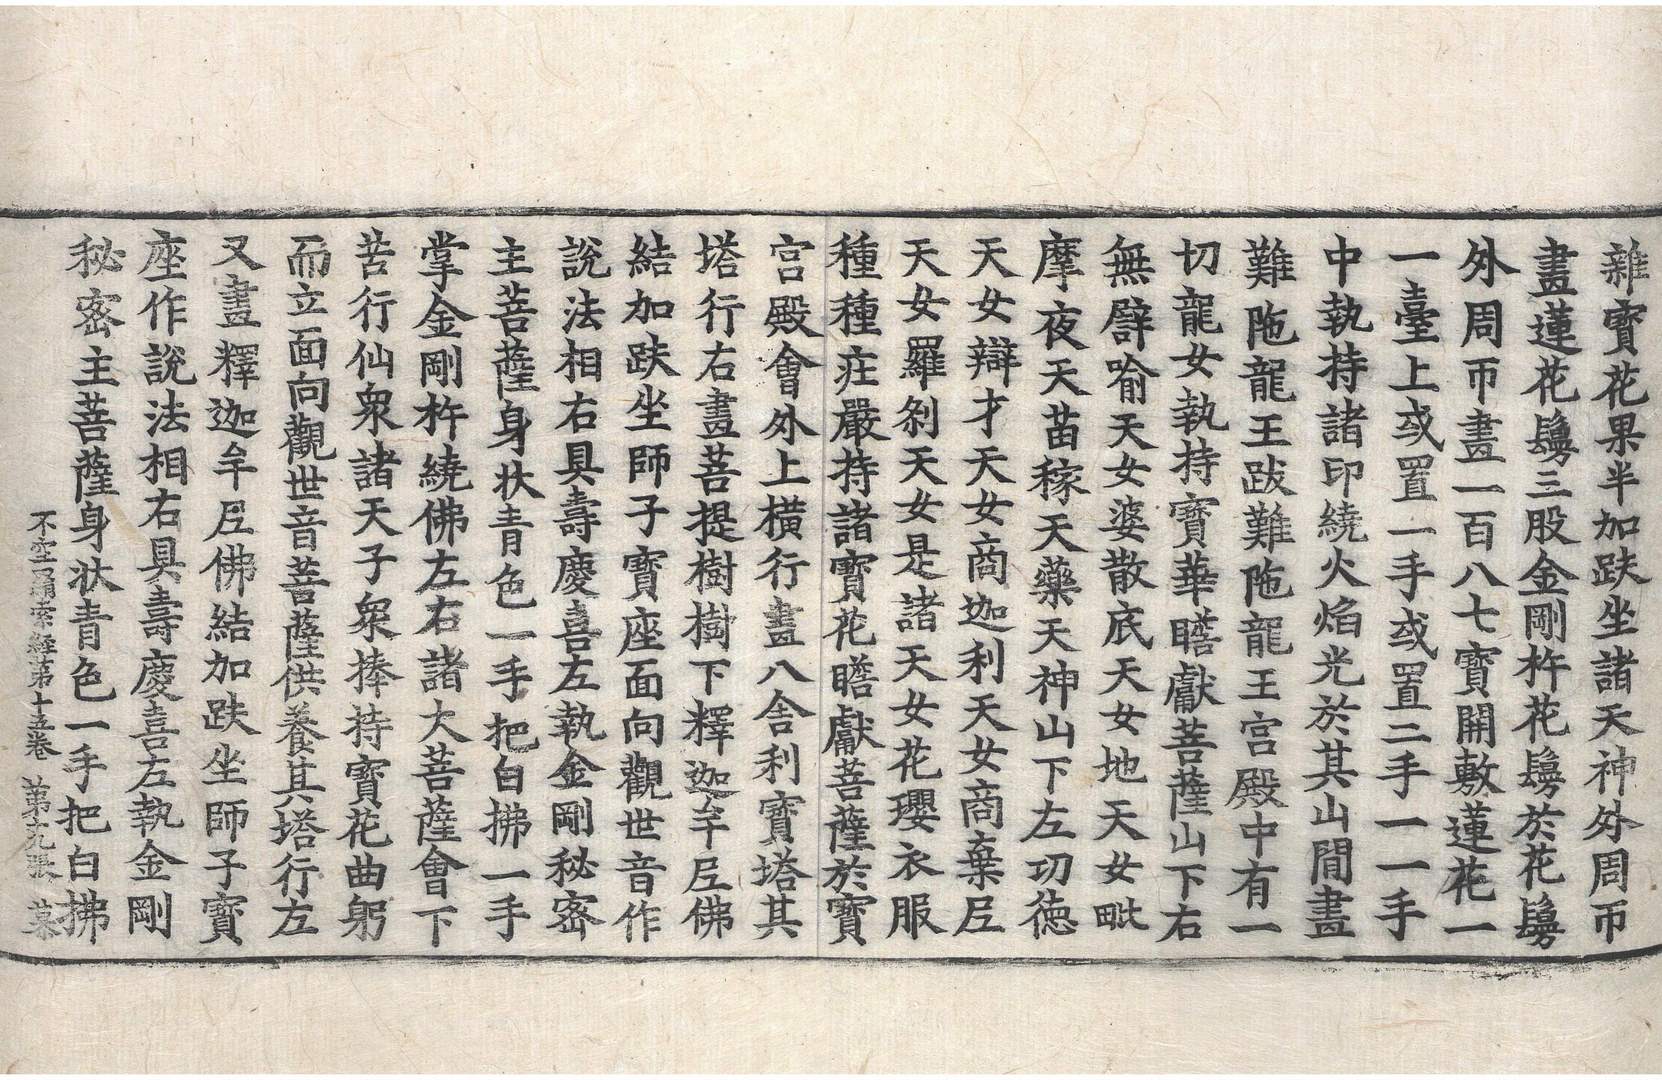 雜寶花果半加趺坐諸天神外周帀
畫蓮花鬘三股金剛杵花鬘於花鬘
外周帀畫一百八七寶開敷蓮花一
一臺上或置一手或置二手一一手
中執持諸印繞火焰光於其山間畫
難陁龍王跋難陁龍王宮殿中有一
切龍女執持寶華瞻獻菩薩山下右
無譬喻天女婆散底天女地天女毗
摩夜天苗稼天藥天神山下左功德
天女辯才天女商迦利天女商棄尼
天女羅剎天女是諸天女花瓔衣服
種種莊嚴持諸寶花瞻獻菩薩於寶
宮殿會外上橫行畫八舍利寶塔其
塔行右畫菩提樹樹下釋迦牟尼佛
結加趺坐師子寶座面向觀世音作
說法相右具壽慶喜左執金剛秘密
主菩薩身狀青色一手把白拂一手
掌金剛杵繞佛左右諸大菩薩會下
苦行仙衆諸天子衆捧持寶花曲躬
而立面向觀世音菩薩供養其塔行左
又畫釋迦牟尼佛結加趺坐師子寶
座作說法相右具壽慶喜左執金剛
秘密主菩薩身狀青色一手把白拂
不空羂索経苐十五卷 苐九張 慕